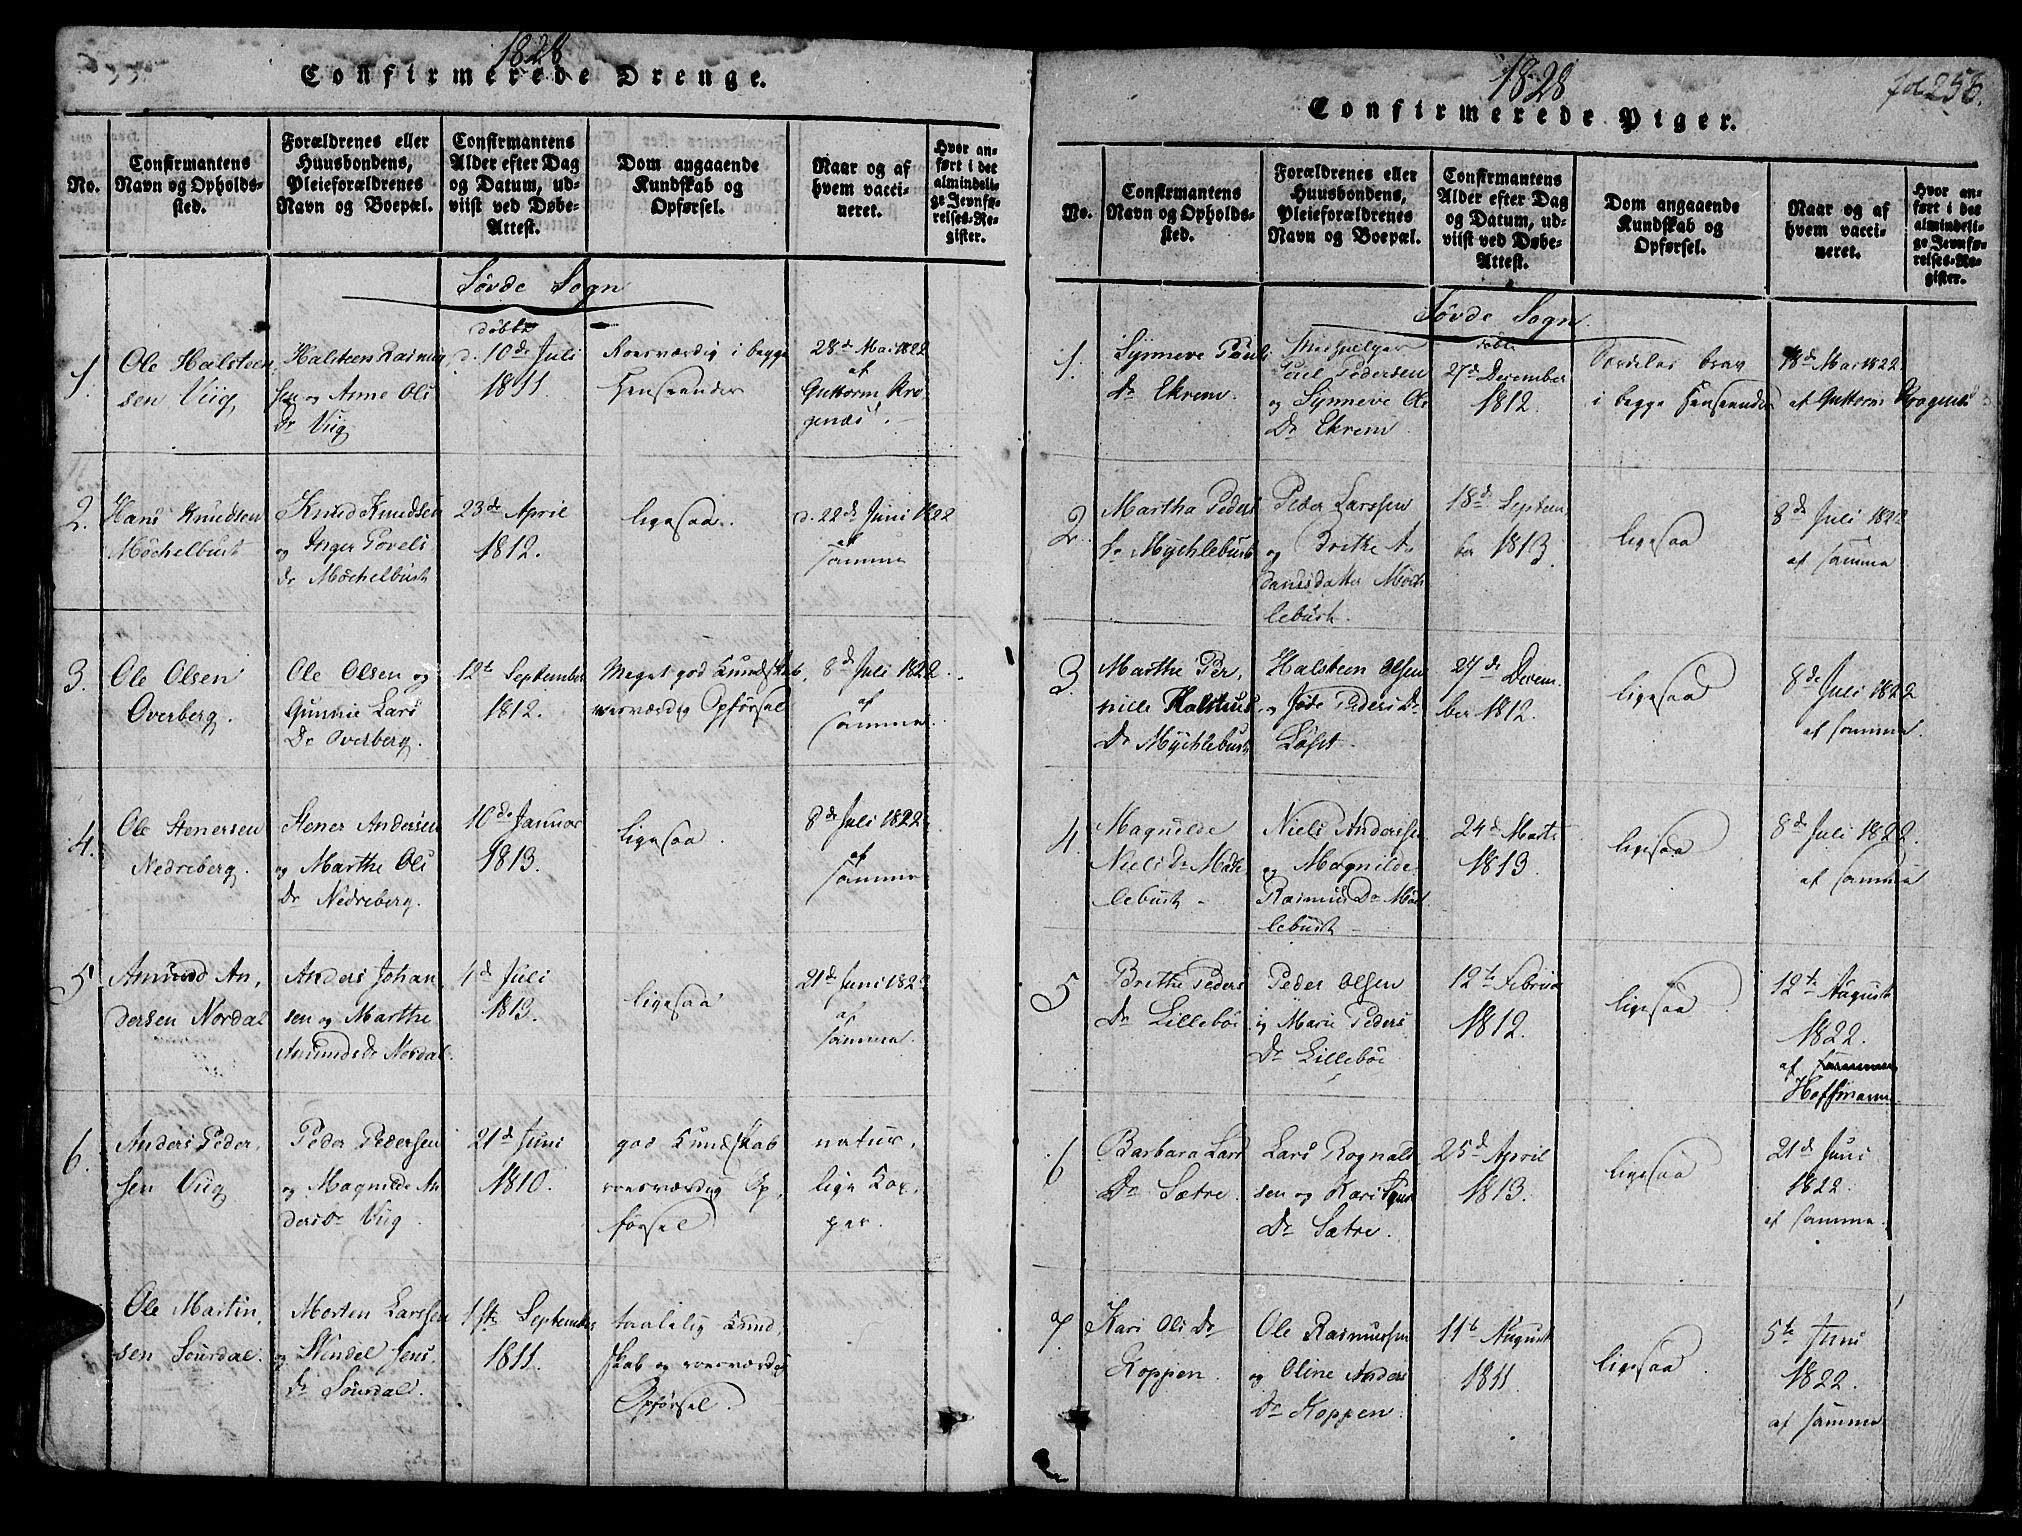 1828
Confirmerede Drenge.
No.
Confirmantens
Navn og Opholds-
sted.
Forældrenes eller
Huusbondens,
Pleieforældrenes
Navn og Boepæl.
Confirmantens
Alder efter Dag
og Datum, ud-
viist ved Døbe-
Attest.
Dom angaaende
Kundskab og
Opførsel.
Naar og af
hvem vacci-
neret.
Hvor an-
ført i det
almindeli-
ge Jevnfø-
relses-Re-
gister.
Søvde Sogn
1.
Ole Halsteen
sen Viig
Halsteen Rasmus
sen og Anne Ols
Dr Viig
døbte
d. 10de Juli
1811
Roesværdig i begge
Henseender
28d Mai 1822
af
Guttorm Kro
genæs.
2.
Hans Knudsen
Möchelbust
Knud Knudsen
og Inger Povels
Dr Möchelbust
23de April
1812.
ligesaa.
d. 22de Juni 1822
af
samme
3.
Ole Olsen
Overberg.
Ole Olsen og
Gunnie Lars
Dr Overberg.
12te September
1812.
Meget god Kundskab,
roesværdig Opførsel
8de Juli 1822.
af
samme.
4.
Ole Stenersen
Nedreberg.
Stener Andersen
og Marthe Ols
Dr Nedreberg.
10de Januar
1813.
ligesaa.
8de Juli 1822
af
samme
5
Amund An,
dersen Nordal
Anders Johan
sen og Marthe
Amundsdr Nordal.
4d Juli
1813.
ligesaa
21de Juni 1822
af
samme.
6.
Anders Peder,
sen Viig
Peder Pedersen
og Magnilde An
dersdr Viig.
21d Juni
1810.
god Kundskab
roesværdig Op,
førsel
natur,
lige Kop,
per.
Ole Martin,
sen Sourdal.
Morten Larssen
og Jens,
dr Sourdal.
1ste September
1811.
taalelig Kund,
skab og roesværdig
Opførsel.
1828
fol 258.
Confirmerede Piger.
No.
Confirmantens
Navn og Opholds-
sted.
Forældrenes eller
Huusbondens,
Pleieforældrenes
Navn og Boepæl.
Confirmantens
Alder efter Dag
og Datum, ud-
viist ved Døbe-
Attest.
Dom angaaende
Kundskab og
Opførsel.
Naar og af
hvem vacci-
neret.
Hvor an-
ført i det
almindeli-
ge Jevnfø-
relses-Re-
gister.
Søvde Sogn.
1.
Synneve Pouls
Dr Ekrem.
Medhjelper
Poul Pedersen
og Synneve Ols
Dr Ekrem
døbte
27d December
1812.
Særdeles brav
i begge Henseender
18de Mai 1822.
af Guttorm Krogenæs
2.
Martha Peders
dr Mychlebust
Peder Larssen
og Brithe A,
damsdatter Möch
lebust.
18d Septem,
ber 1813.
ligesaa
8de Juli 1822
af samme
3.
Marthe Per,
nille Halsteens
Dr Mychlebust
Halsteen Olsen
og Peders Dr
Löset.
27de Decem.
ber 1812.
ligesaa
8de Juli 1822
af samme.
4
Magnilde
Niels Dr Möch
lebust
Niels Andersen
og Magnilde
Rasmus Dr Möch
lebust
24d Marts
1813
ligesaa
8de Juli 1822.
af samme
5
Brithe Peders
Dr Lilleböe
Peder Olsen
og Marie Peders
Dr Lilleböe
12te Februar
1812.
ligesaa
12te August
1822.
af samme
Hoffmann
6
Barbara Lars
Dr Sætre.
Lars Rognald
sen og Kari
Dr Sætre.
25d April
1813.
ligesaa
21de Juni
1822.
af samme.
7.
Kari Ols Dr
Koppen.
Ole Rasmussen
og Oline Anders
Dr Koppen.
11te August
1811
ligesaa.
5te Juni
1822.
af samme